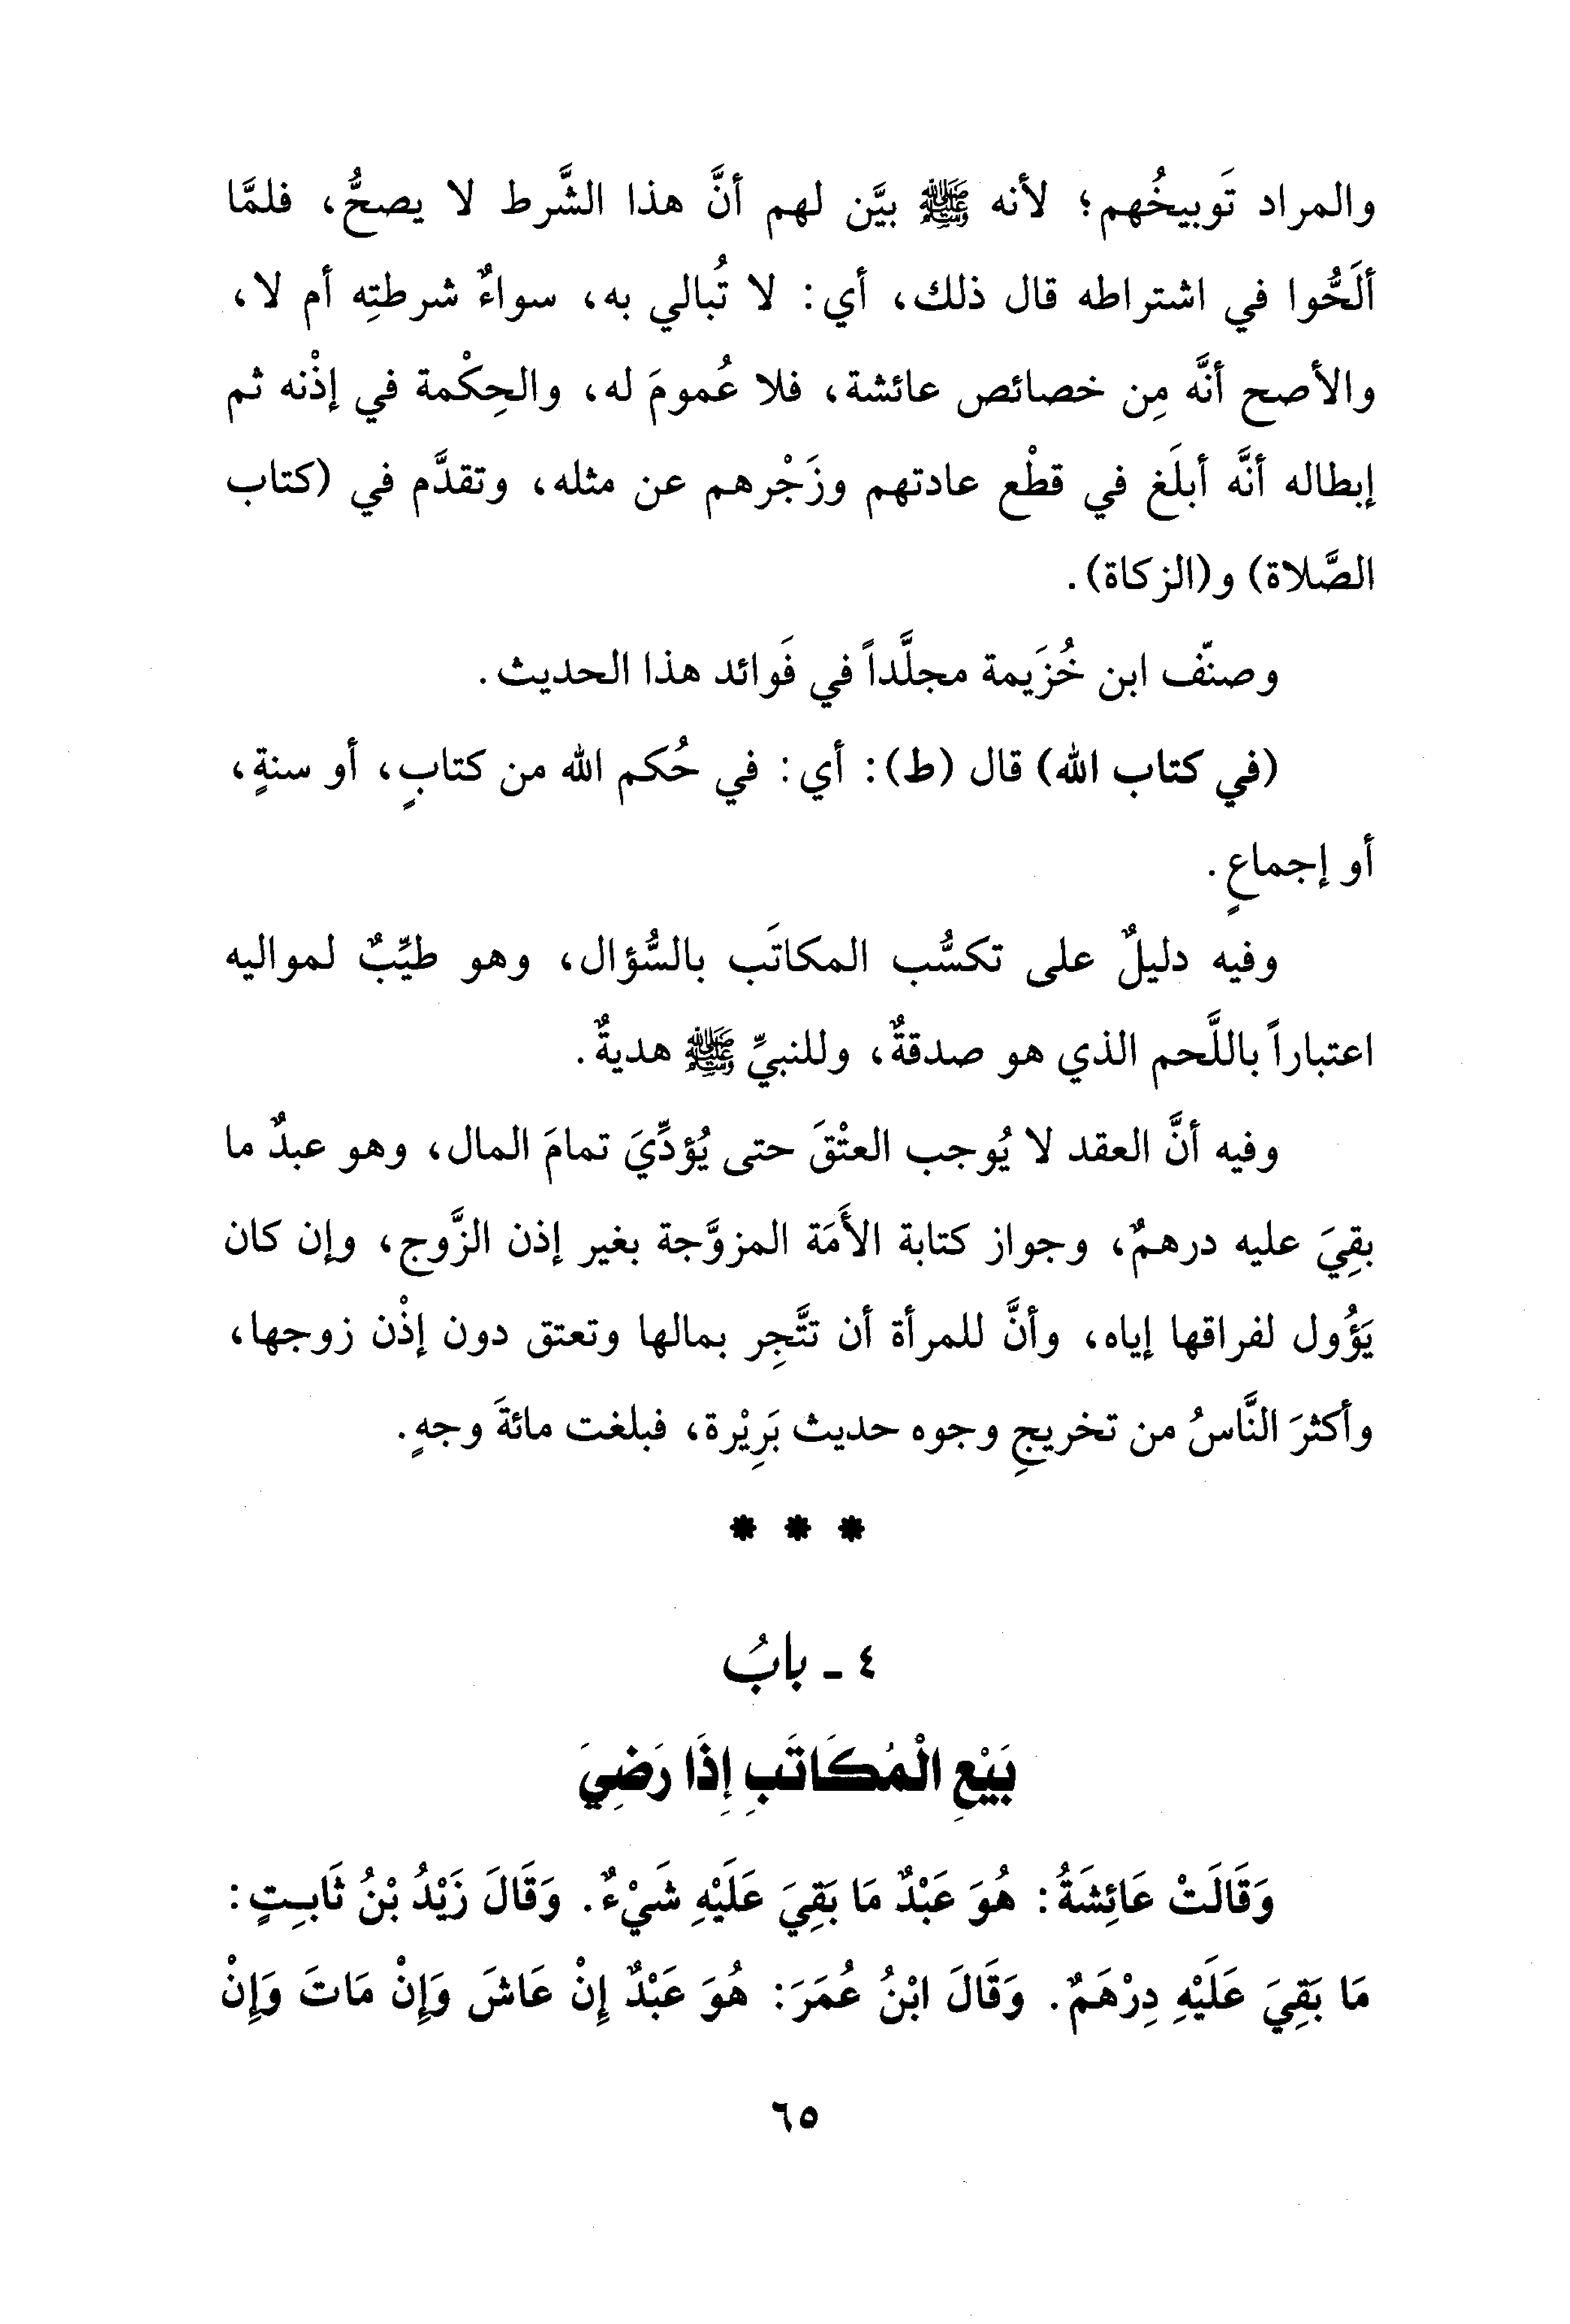 والمراد تَوبيخُهم؛ لأنه ﷺ بيَّن لهم أنَّ هذا الشَّرط لا يصحُّ، فلمَّا
ألَحُّوا في اشتراطه قال ذلك، أي: لا تُبالي به، سواءٌ شرطتِه أم لا،
والأصح أنَّه مِن خصائص عائشة، فلا عُمومَ له، والحِكْمة في إذْنه ثم
إبطاله أنَّه أبلَغ في قطْع عادتهم وزَجْرهم عن مثله، وتقدَّم في (كتاب
الصَّلاة) و(الزكاة).
وصنّف ابن خُزَيمة مجلَّداً في فَوائد هذا الحديث.
(في كتاب الله) قال (ط): أي: في حُكم الله من كتابٍ، أو سنةٍ،
أو إجماعٍ.
وفيه دليلٌ على تكسُّب المكاتَب بالسُّؤال، وهو طيِّبٌ لمواليه
اعتباراً باللَّحم الذي هو صدقةٌ، وللنبيِّ ﷺ هديةٌ.
وفيه أنَّ العقد لا يُوجب العتْقَ حتى يُؤدِّيَ تمامَ المال، وهو عبدٌ ما
بقِيَ عليه درهمٌ، وجواز كتابة الأَمَة المزوَّجة بغير إذن الزَّوج، وإن كان
يَؤُول لفراقها إياه، وأنَّ للمرأة أن تتَّجِر بمالها وتعتق دون إذْن زوجها،
وأكثرَ النَّاسُ من تخريجِ وجوه حديث بَرِيْرة، فبلغت مائةَ وجهٍ.
* * *
٤ - بابُ
بَيْعِ الْمُكَاتَبِ إِذَا رَضِيَ
وَقَالَتْ عَائِشَةُ: هُوَ عَبْدٌ مَا بَقِيَ عَلَيْهِ شَيْءٌ. وَقَالَ زَيْدُ بْنُ ثَابِتٍ:
مَا بَقِيَ عَلَيْهِ دِرْهَمٌ. وَقَالَ ابْنُ عُمَرَ: هُوَ عَبْدٌ إِنْ عَاشَ وَإِنْ مَاتَ وَإِنْ
٦٥